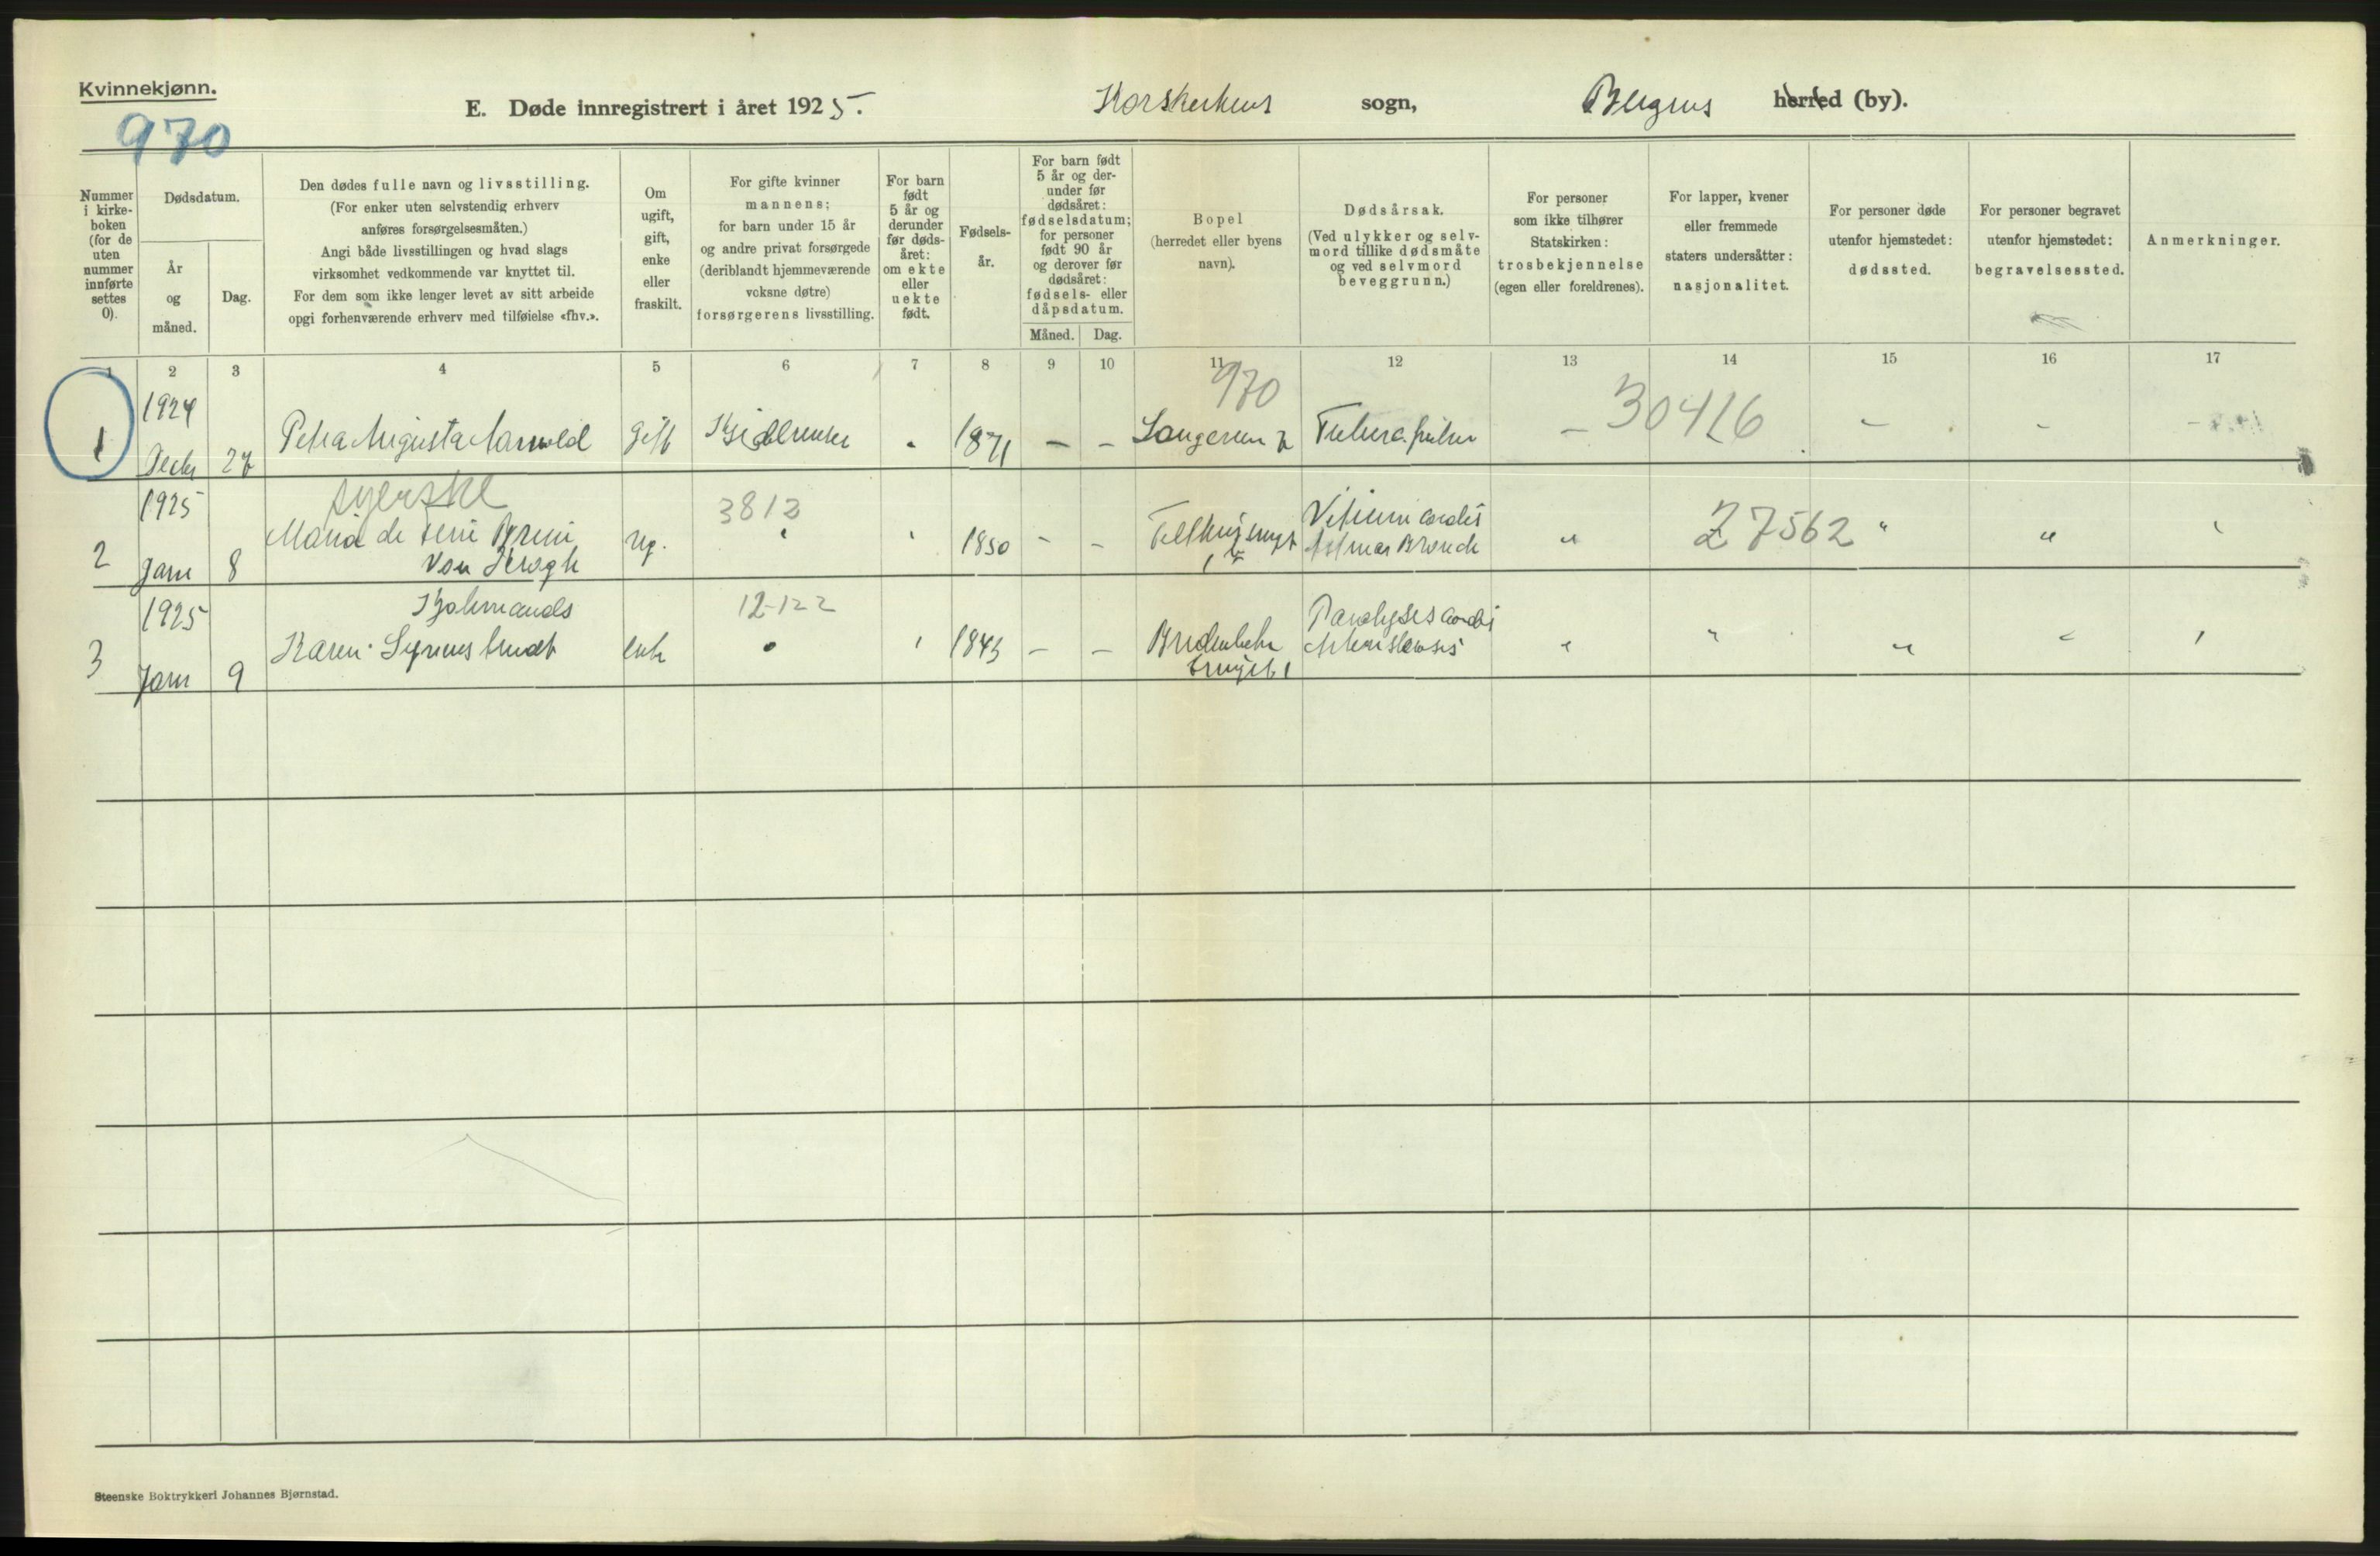 Kvinnekjønn.
970
E. Døde innregistrert i året 1925. Korskirkens sogn, Bergens herred (by).
Nummer i kirkeboken (for de uten nummer innførte settes 0).
Dødsdatum.
År og måned.
Dag.
Den dødes fulle navn og livsstilling.
(For enker uten selvstendig erhverv
anføres forsørgelsesmåten.)
Angi både livsstillingen og hvad slags
virksomhet vedkommende var knyttet til.
For dem som ikke lenger levet av sitt arbeide
opgi forhenværende erhverv med tilføielse «fhv.».
Om ugift, gift, enke eller fraskilt.
For gifte kvinner
mannens;
for barn under 15 år
og andre privat forsørgede
(deriblandt hjemmeværende
voksne døtre)
forsørgerens livsstilling.
For barn født 5 år og derunder før dødsåret: om ekte eller uekte født.
Fødselsår.
For barn født 5 år og derunder før dødsåret: fødselsdatum; for personer født 90 år og derover før dødsåret: fødsels- eller dåpsdatum.
Måned.
Dag.
Bopel
(herredet eller byens
navn).
Dødsårsak.
(Ved ulykker og selvmord tillike dødsmåte
og ved selvmord
beveggrunn.)
For personer
som ikke tilhører
Statskirken:
trosbekjennelse
(egen eller foreldrenes).
For lapper, kvener
eller fremmede
staters undersåtter:
nasjonalitet.
For personer døde
utenfor hjemstedet:
dødssted.
For personer begravet
utenfor hjemstedet:
begravelsessted.
Anmerkninger.
1 2 3 4 5 6 7 8 9 10 11 12 13 14 15 16 17
1924 970 30416
1 Decbr 27 Petra Augusta gift 1871 - -
1925 syerske 3812 Vitium cordis
2 Janr 8 Maria de ug. " 1850 - - 27562
von Krogh
1925 12-122 Paralyses cordis
3 Janr 9 Karen enke 1843 - -
Steenske Boktrykkeri Johannes Bjørnstad.